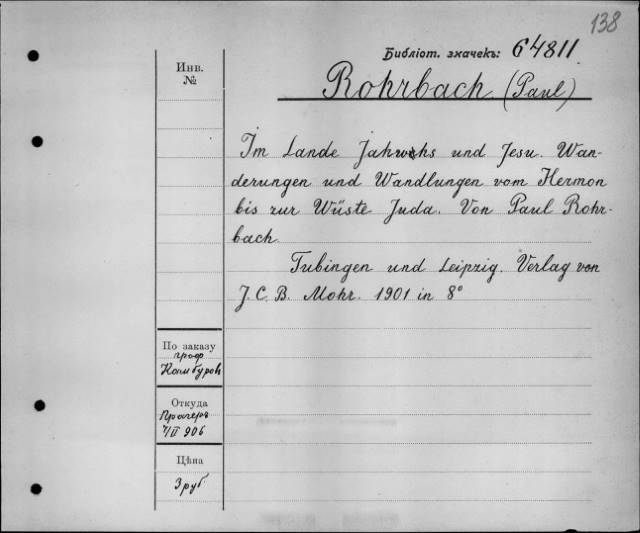 138
Библіот. значекъ: 64811
Rohrbach (Paul)
Инв.
№
Im Lande Jahwehs und Jesu. Wan-
derungen und Wandlungen vom Hermon
bis zur Wüste Juda. Von Paul Rohr-
bach.
Tubingen und Leipzig. Verlag von
J. C. B. Mohr. 1901 in 8°
По заказу
Откуда
906
Цѣна
3 руб